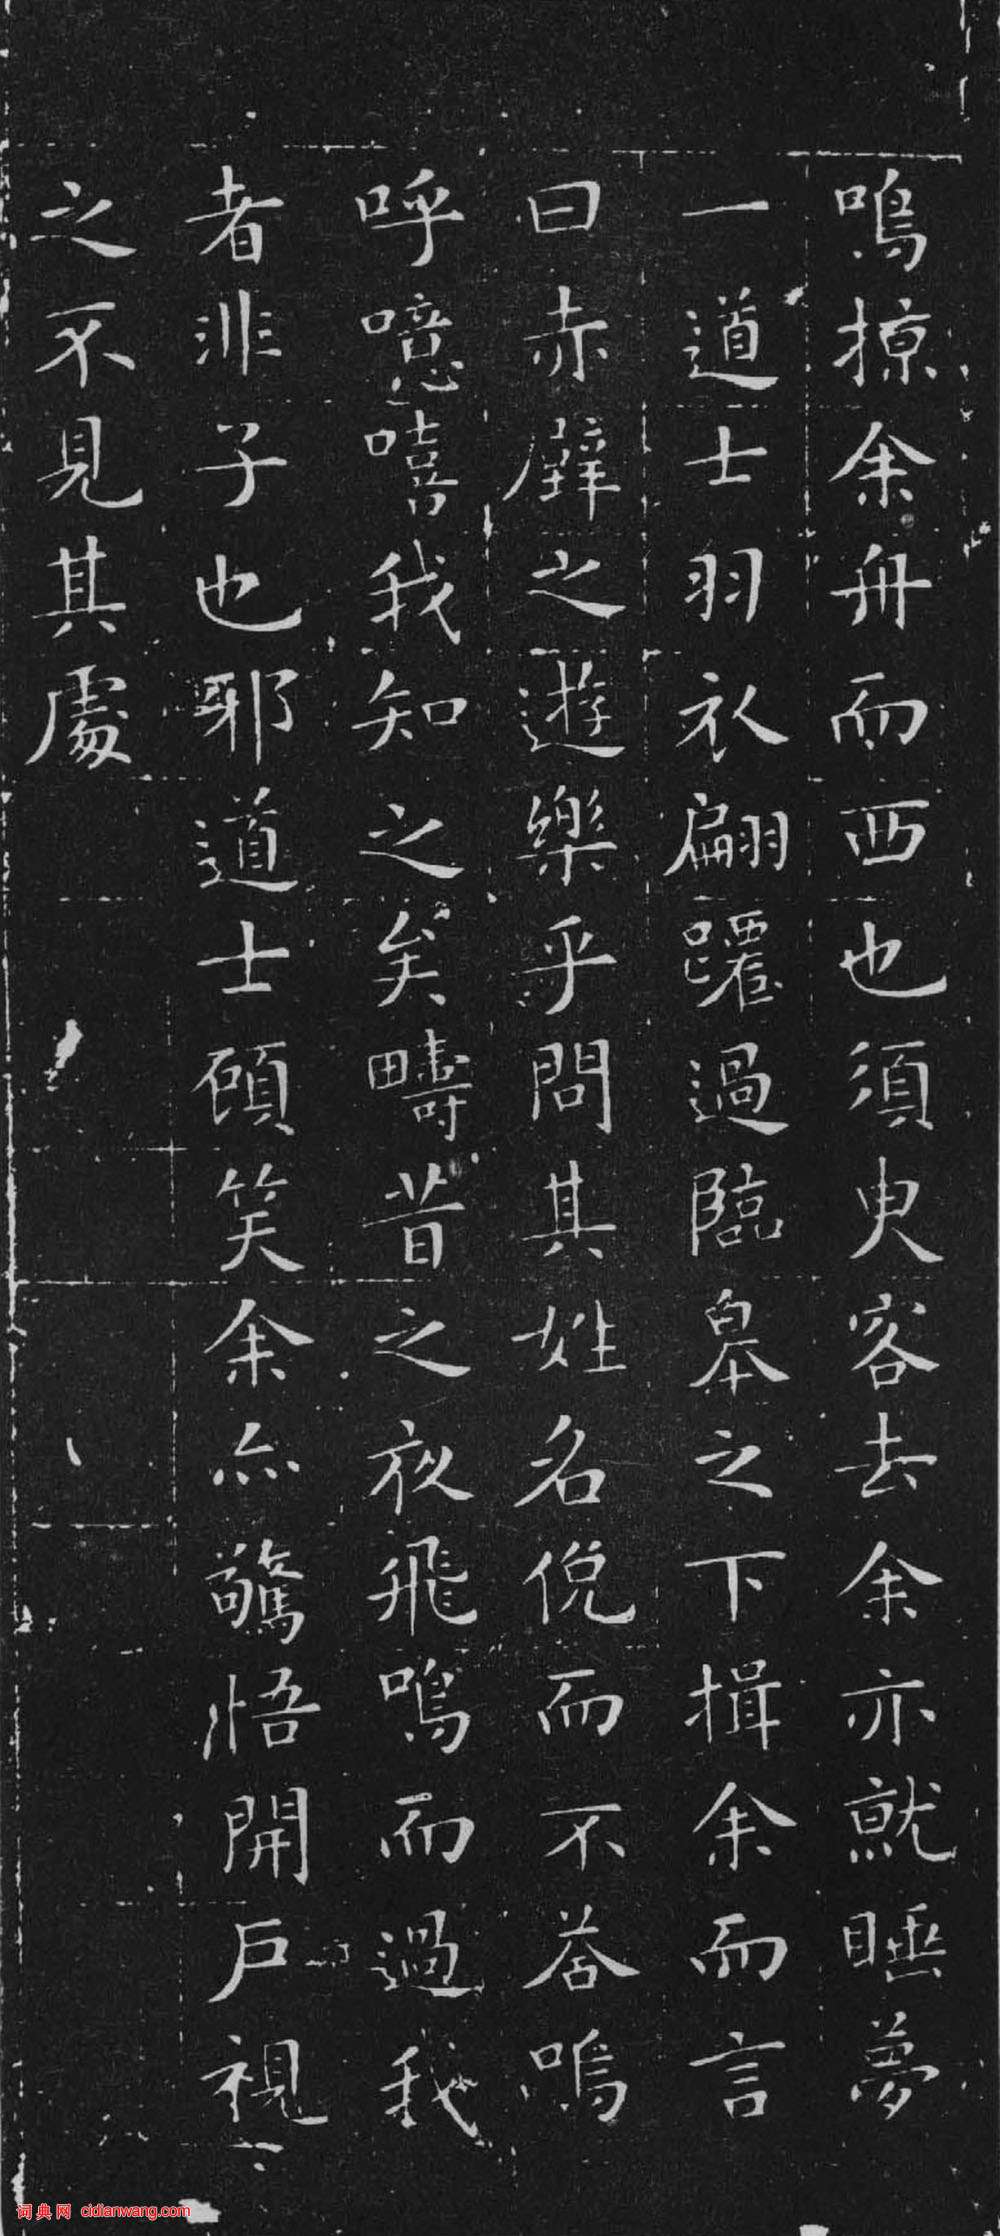 鳴掠余舟而西也須臾客去余亦就睡夢
一道士羽衣翩躚過臨皋之下揖余而言
曰赤壁之遊樂乎問其姓名俛而不荅嗚
呼噫嘻我知之矣疇昔之夜飛鳴而過我
者非子也邪道士顧笑余亦驚悟開戶視
之不見其處
词典网 cidianwang.com